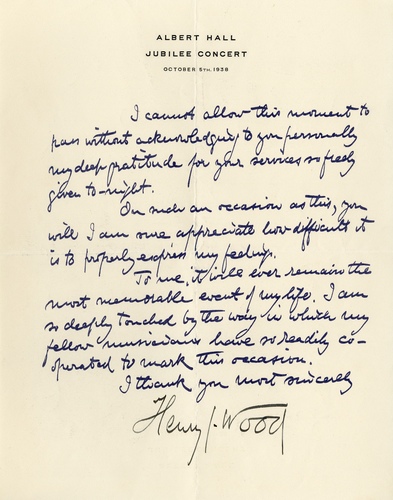 ALBERT HALL
JUBILEE CONCERT
OCTOBER 5TH, 1938
I cannot allow this moment to
pass without acknowledging to you personally
my deep gratitude for your services so freely
given to-night.
On such an occasion as this, you
will I am sure appreciate how difficult it
is to properly express my feelings.
To me, it will ever remain the
most memorable event of my life. I am
so deeply touched by the way in which my
fellow musicians have so readily co-
operated to mark this occasion.
I thank you most sincerely
Henry J. Wood